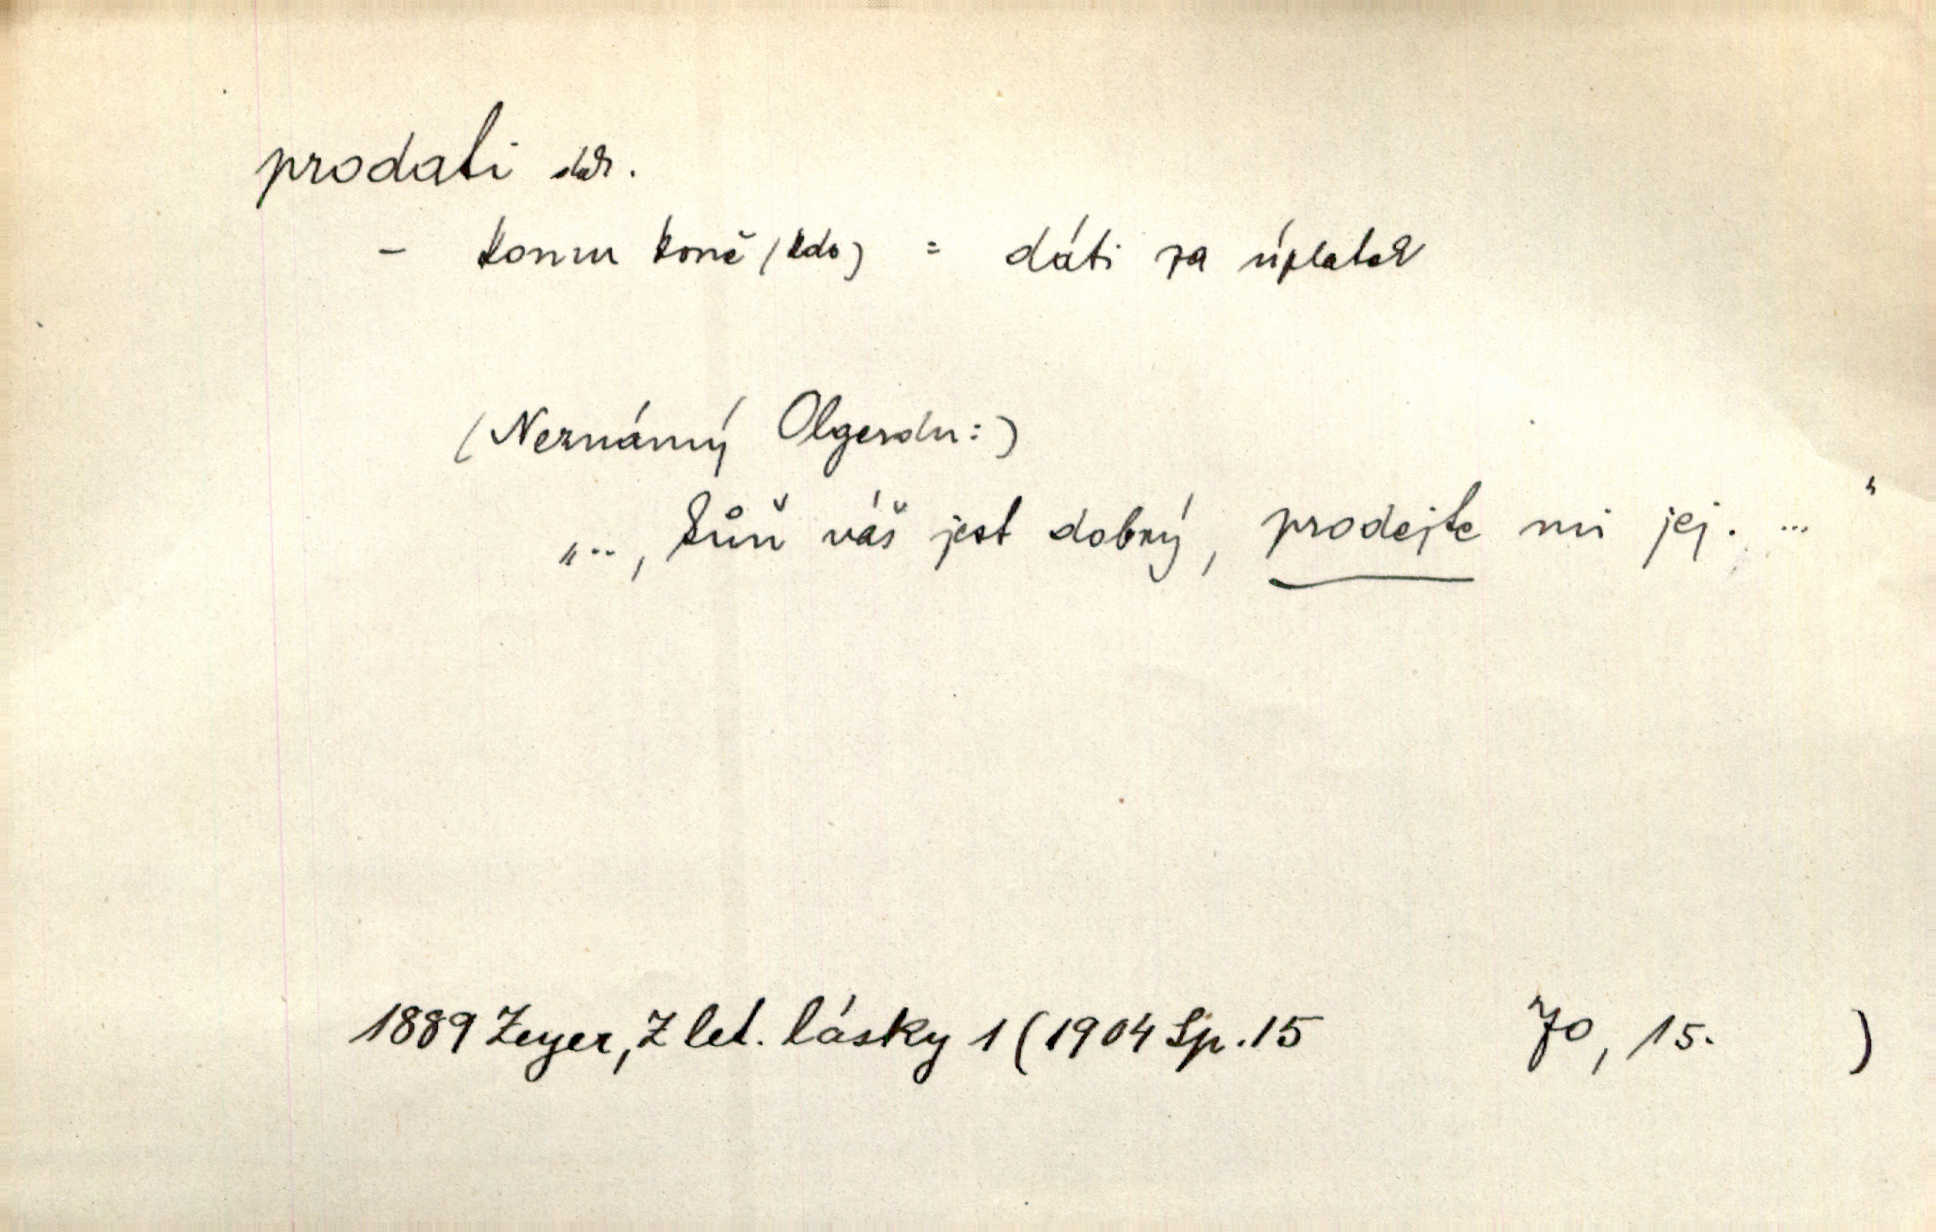 prodati dok.
– komu koně (kdo) = dáti za úplatek
(Neznámý Olgerdu:)
„.., kůň váš jest dobrý, prodejte mi jej. ..."
1889 Zeyer, Z let. lásky 1 (1904 Sp. 15 70, 15. )